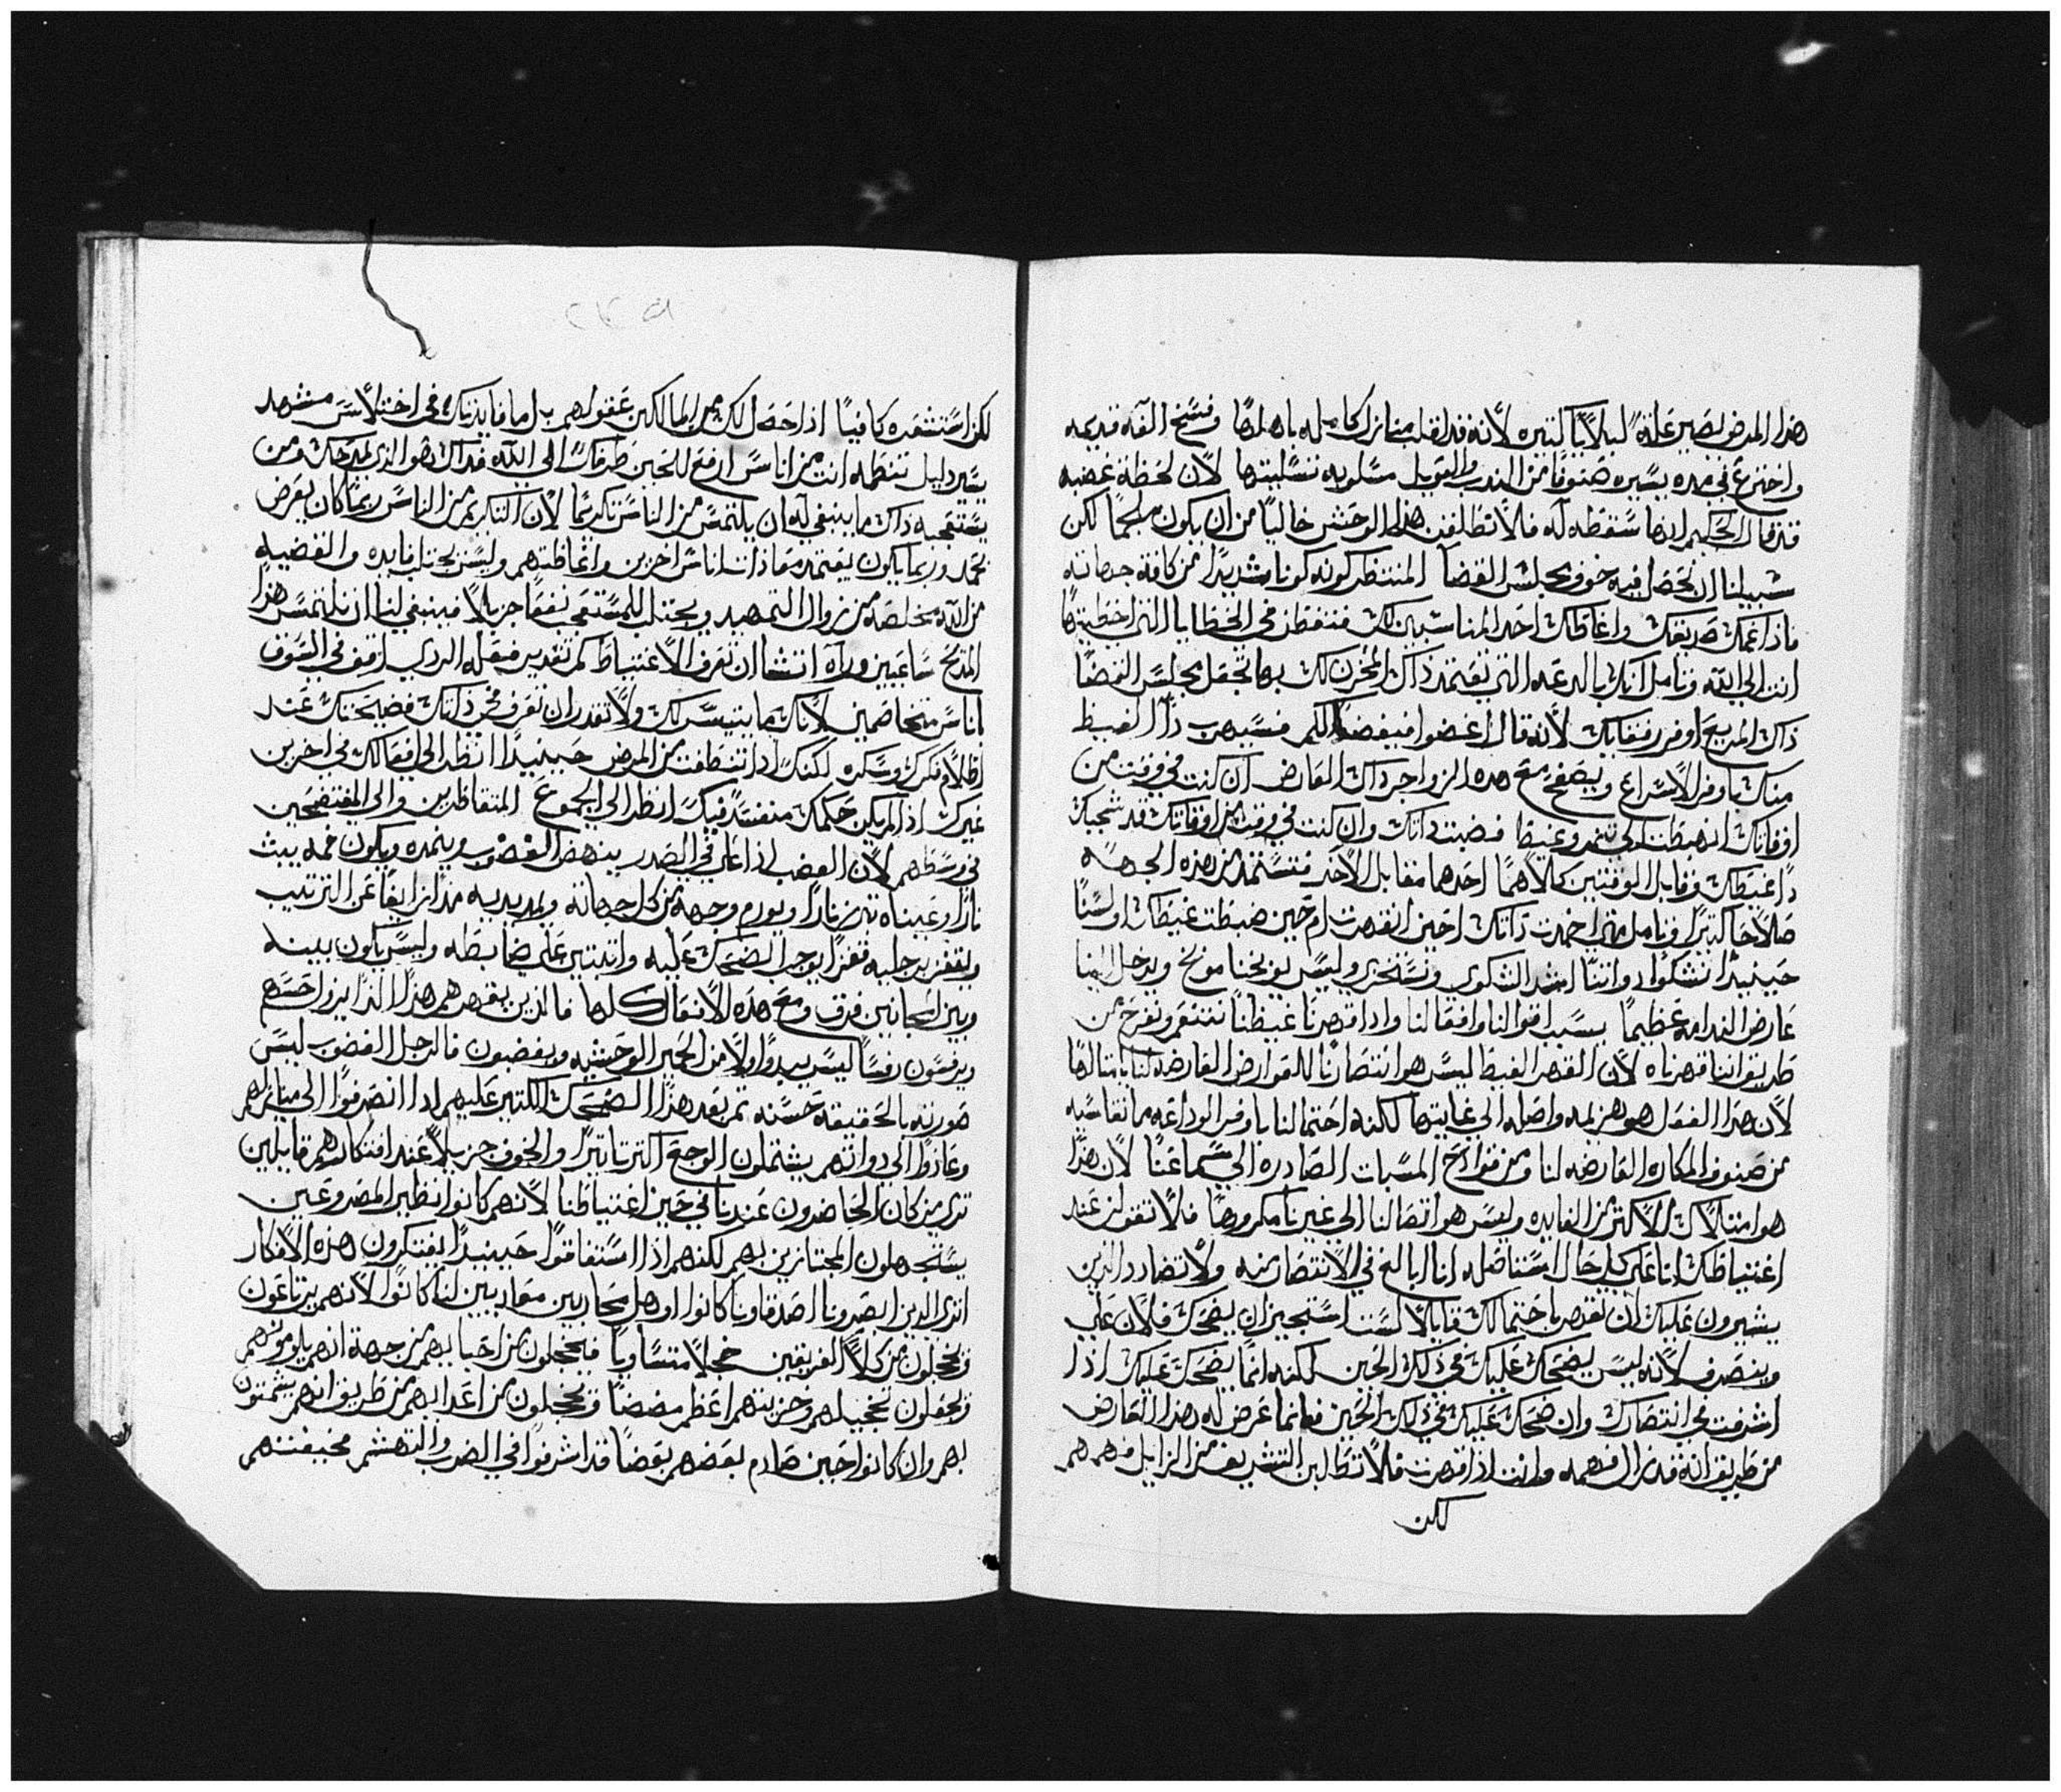 هذا المرض يصير علة لبلايا كثيره لأنه قد قلب منازل كامله باهلها وفسخ الفه قديمه
واخترع في مده يسيره صنوفا من الندب والعويل مسلوبه تسليتها لان لحظة غضبه
قد قال الحكيم انها سقطه له فلا تطلقن هذا الوحش خاليا من ان يكون ملجما لكن
سبيلنا ان نحصل فيه خوف مجلس القضا المنتظر كونه كونا شديدا من كافة جهاته
فاذا غمك صديقك واغاظك احد المناسبين لك فتفطن في الخطايا التي اخطيتها
انت الي الله وتامل انك بالدعه التي تعتمد ذاك المحزن لك بها تجعل مجلس القضا
ذاك المريع اوفر رفقا بك لأنه قال اغضوا فيغضا لكم فسيهرب ذا الغيظ
منك باوفر الاسراع ويصفح مع هده الزواجر ذاك العارض ان كنت في وقت من
اوقاتك انهبطت الي تنمر وغيظا فضبت ذاتك وان كنت في وقت من اوقاتك قد سحبك
ذا غيظك وقابل الوقتين كلاهما احدهما مقابل الأخر فتستمد من هذه الجهه
صلاحا كثيرا وتامل متي احمدت ذاتك احين انقهرت ام حين ضبطت غيظك اولسنا
حينيذا نشكوا دواتنا اشد الشكوي ونستخزي وليس يوبخنا موبخ ويدخل الينا
عارض الندامه عظيما بسبب اقوالنا وافعالنا واذا قهرنا غيظنا نتنعم ونفرح من
طريق اننا قهرناه لان القهر الغيظ ليس هو انتصارنا للعوارض العارضه لنا بامثالها
لان هدا الفعل هو هزيمه واصله الي غايتها لكنه احتمالنا باوفر الوداعه ما نقاسيه
من صنوف المكاره العارضه لنا ومن قوادح المسبات الصادره الي سماعنا لان هذا
هو امتلاك الاكثر من الفايده وليس هو اتصالنا الي غيرنا مكروها فلا تقولن عند
اغتياظك انا علي كل حال استاصله انا ابالغ في الانتصار منه ولا تضادد الذين
يشيرون عليك ان تقهر باحتمالك قايلا لست استجيز ان يضحك فلان علي
وينصرف لانه ليس يضحك عليك في ذلك الحين لكنه انما يضحك عليك اذا
اشرفت في انتصارك وان ضحك عليك في ذلك الحين فانما عرض له هذا العارض
من طريق انه قد زال فهمه وانت اذا قهرت فلا تطلبن التشريف من الزايل فهمهم
لكن
لكن استشعره كافيا اذا حصل لك من المالكين عقولهم بل اما فايدتك في اختلاس مشهد
يسير دليل تنظمه انت من اناس ارفع للحين طرفك الي الله فداك هو الذي يمدحك ومن
يستعجبه ذاك ما ينبغي له ان يلتمس من الناس تكريما لان التكريم من الناس ربما كان يعرض
تحمد وربما يكون يعتمد معاذات اناس اخرين واغاظتهم وليس يجتلب فايده والقضيه
من الله مخلصه من زوال التمهيد ويجتلب للمستعجب نفعا جزيلا فينبغي لنا ان نلتمس هذا
المدح ساعيين وراه اتشا ان تعرف الاغتياظ كم تقدير فعله الردي اوقف في السوق
اناس متخاصمين لانك ما يتيسر لك ولا تقدر ان تعرف في ذاتك فضيحتك عند
اظلام فكرك وسكره لكنك اذا تنظفت من المرض حينيذا انظر الي افعالك في اخرين
غيرك اذا لم يكن حكمك منفسدا فيك انظر الي الجموع المتغاظرين والي المفتضحين
في وسطهم لان الغضب اذا غلي في الصدر ينهض الغضوب وينمره ويكون فمه يبث
نارا وعيناه تهز نارا ويورم وجهه من كل جهاته ويمد يديه مدا زايغا عن الترتيب
ويقفز برجليه قفزا يوجب الضحك عليه واثبتين علي ضابطه وليس يكون بينه
وبين المجانين فرق ومع هذه الافعال كلها فالذين يقهرهم هذا الذا يزول حسهم
ويرفسون رفسا ليس بيدوا اولا من الحمير الوحشيه ويغضبون فالرجل الغضوب ليس
صورته بالحقيقة حسنه ثم بعد هذا الضحك الكثير عليهم اذا انصرفوا الي منازلهم
وعادوا الي دواتهم يشتملون الوجع اكثر تاثيرا والخوف جزيلا عند افتكارهم قايلين
تري من كان الحاضرون عندنا في حين اغتياظنا لانهم كانوا نظير المصروعين
يستجهلون المجتازين بهم لكنهم اذا استفاقوا حينيذا يفتكرون هذه الافكار
اتري الدين ابصرونا اصدقاونا كانوا او هل محاربين معاديين لنا كانوا لانهم يرتاعون
ويخجلون من كلا الفريقين خجلا متساويا فيخجلون من احبايهم من جهة انهم يلومونهم
ويجعلون تخجيلهم وخزيتهم اعظم مضضا ويخجلون من اعدايهم من طريق انهم يشمتون
بهم وان كانوا حين صادم بعضهم بعضا قد اشرفوا في الضرب والتهشم مخيفتهم